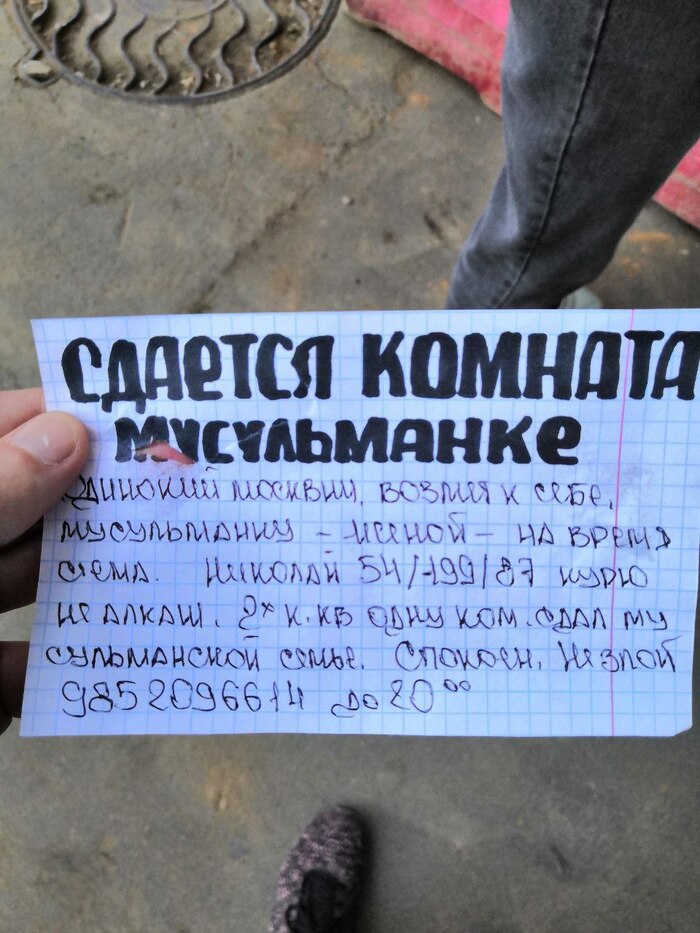 СДАЕТСЯ КОМНАТА
МУСУЛЬМАНКЕ
Одинокий москвич, возмёт к себе,
мусульманку - женой - на время
съема. Николай 54/199/87 курю
не алкаш. 2х к.кв одну ком. сдал му
сульманской семье. Спокоен, незлой
9852096614 до 20⁰⁰